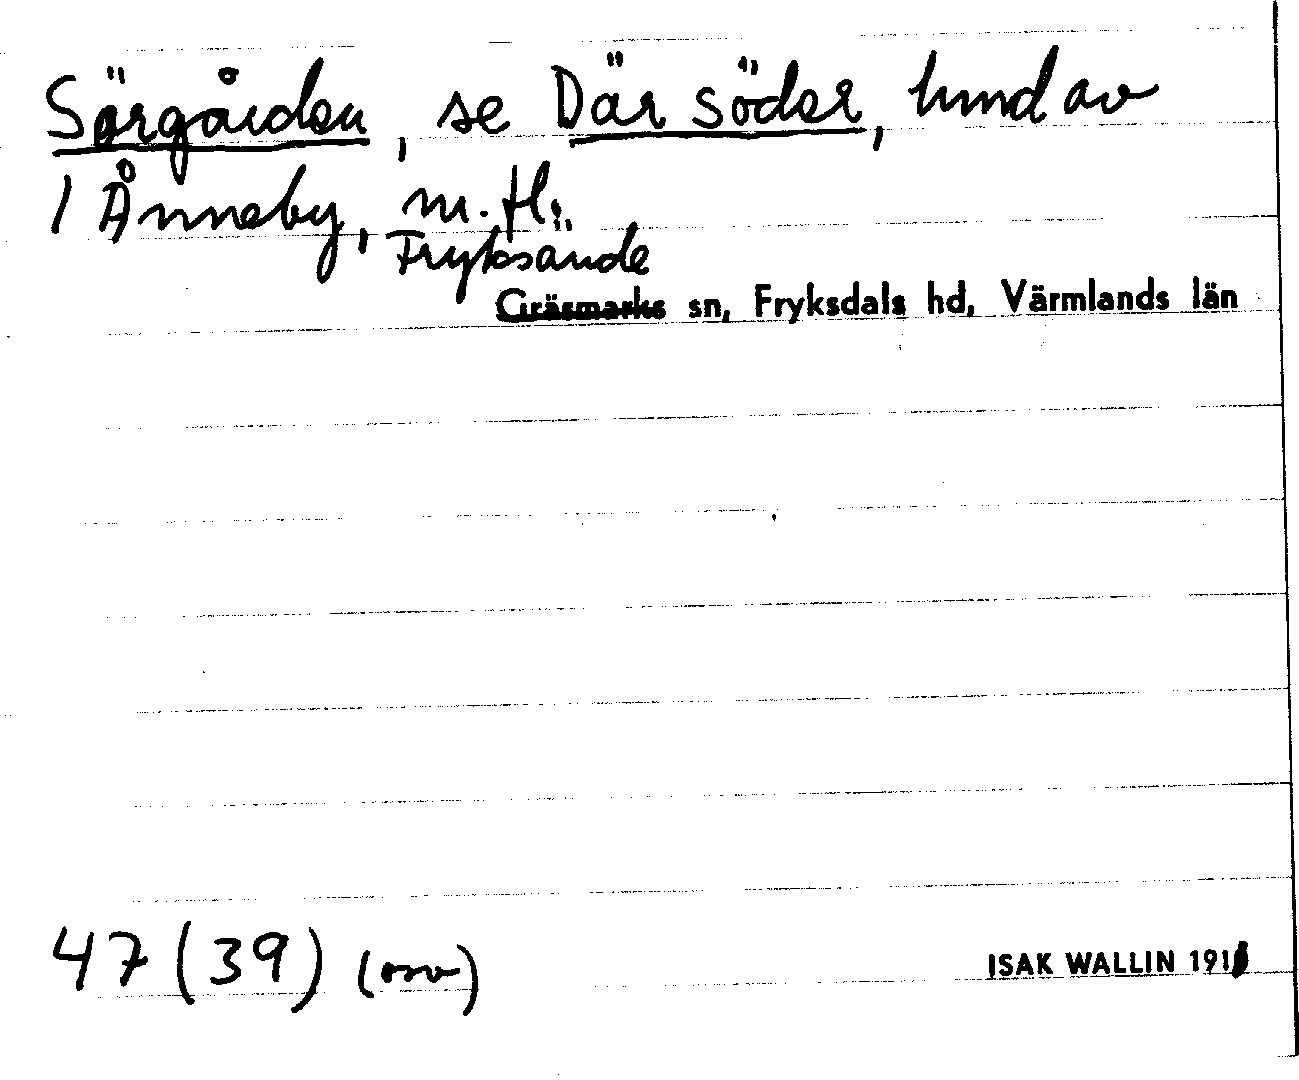 Sörgården, se Där söder, hmd av
1 Ånneby, m. fl.
Fryksände
Gräsmarks sn, Fryksdals hd, Värmlands län
47 (39) (osv)
ISAK WALLIN 191